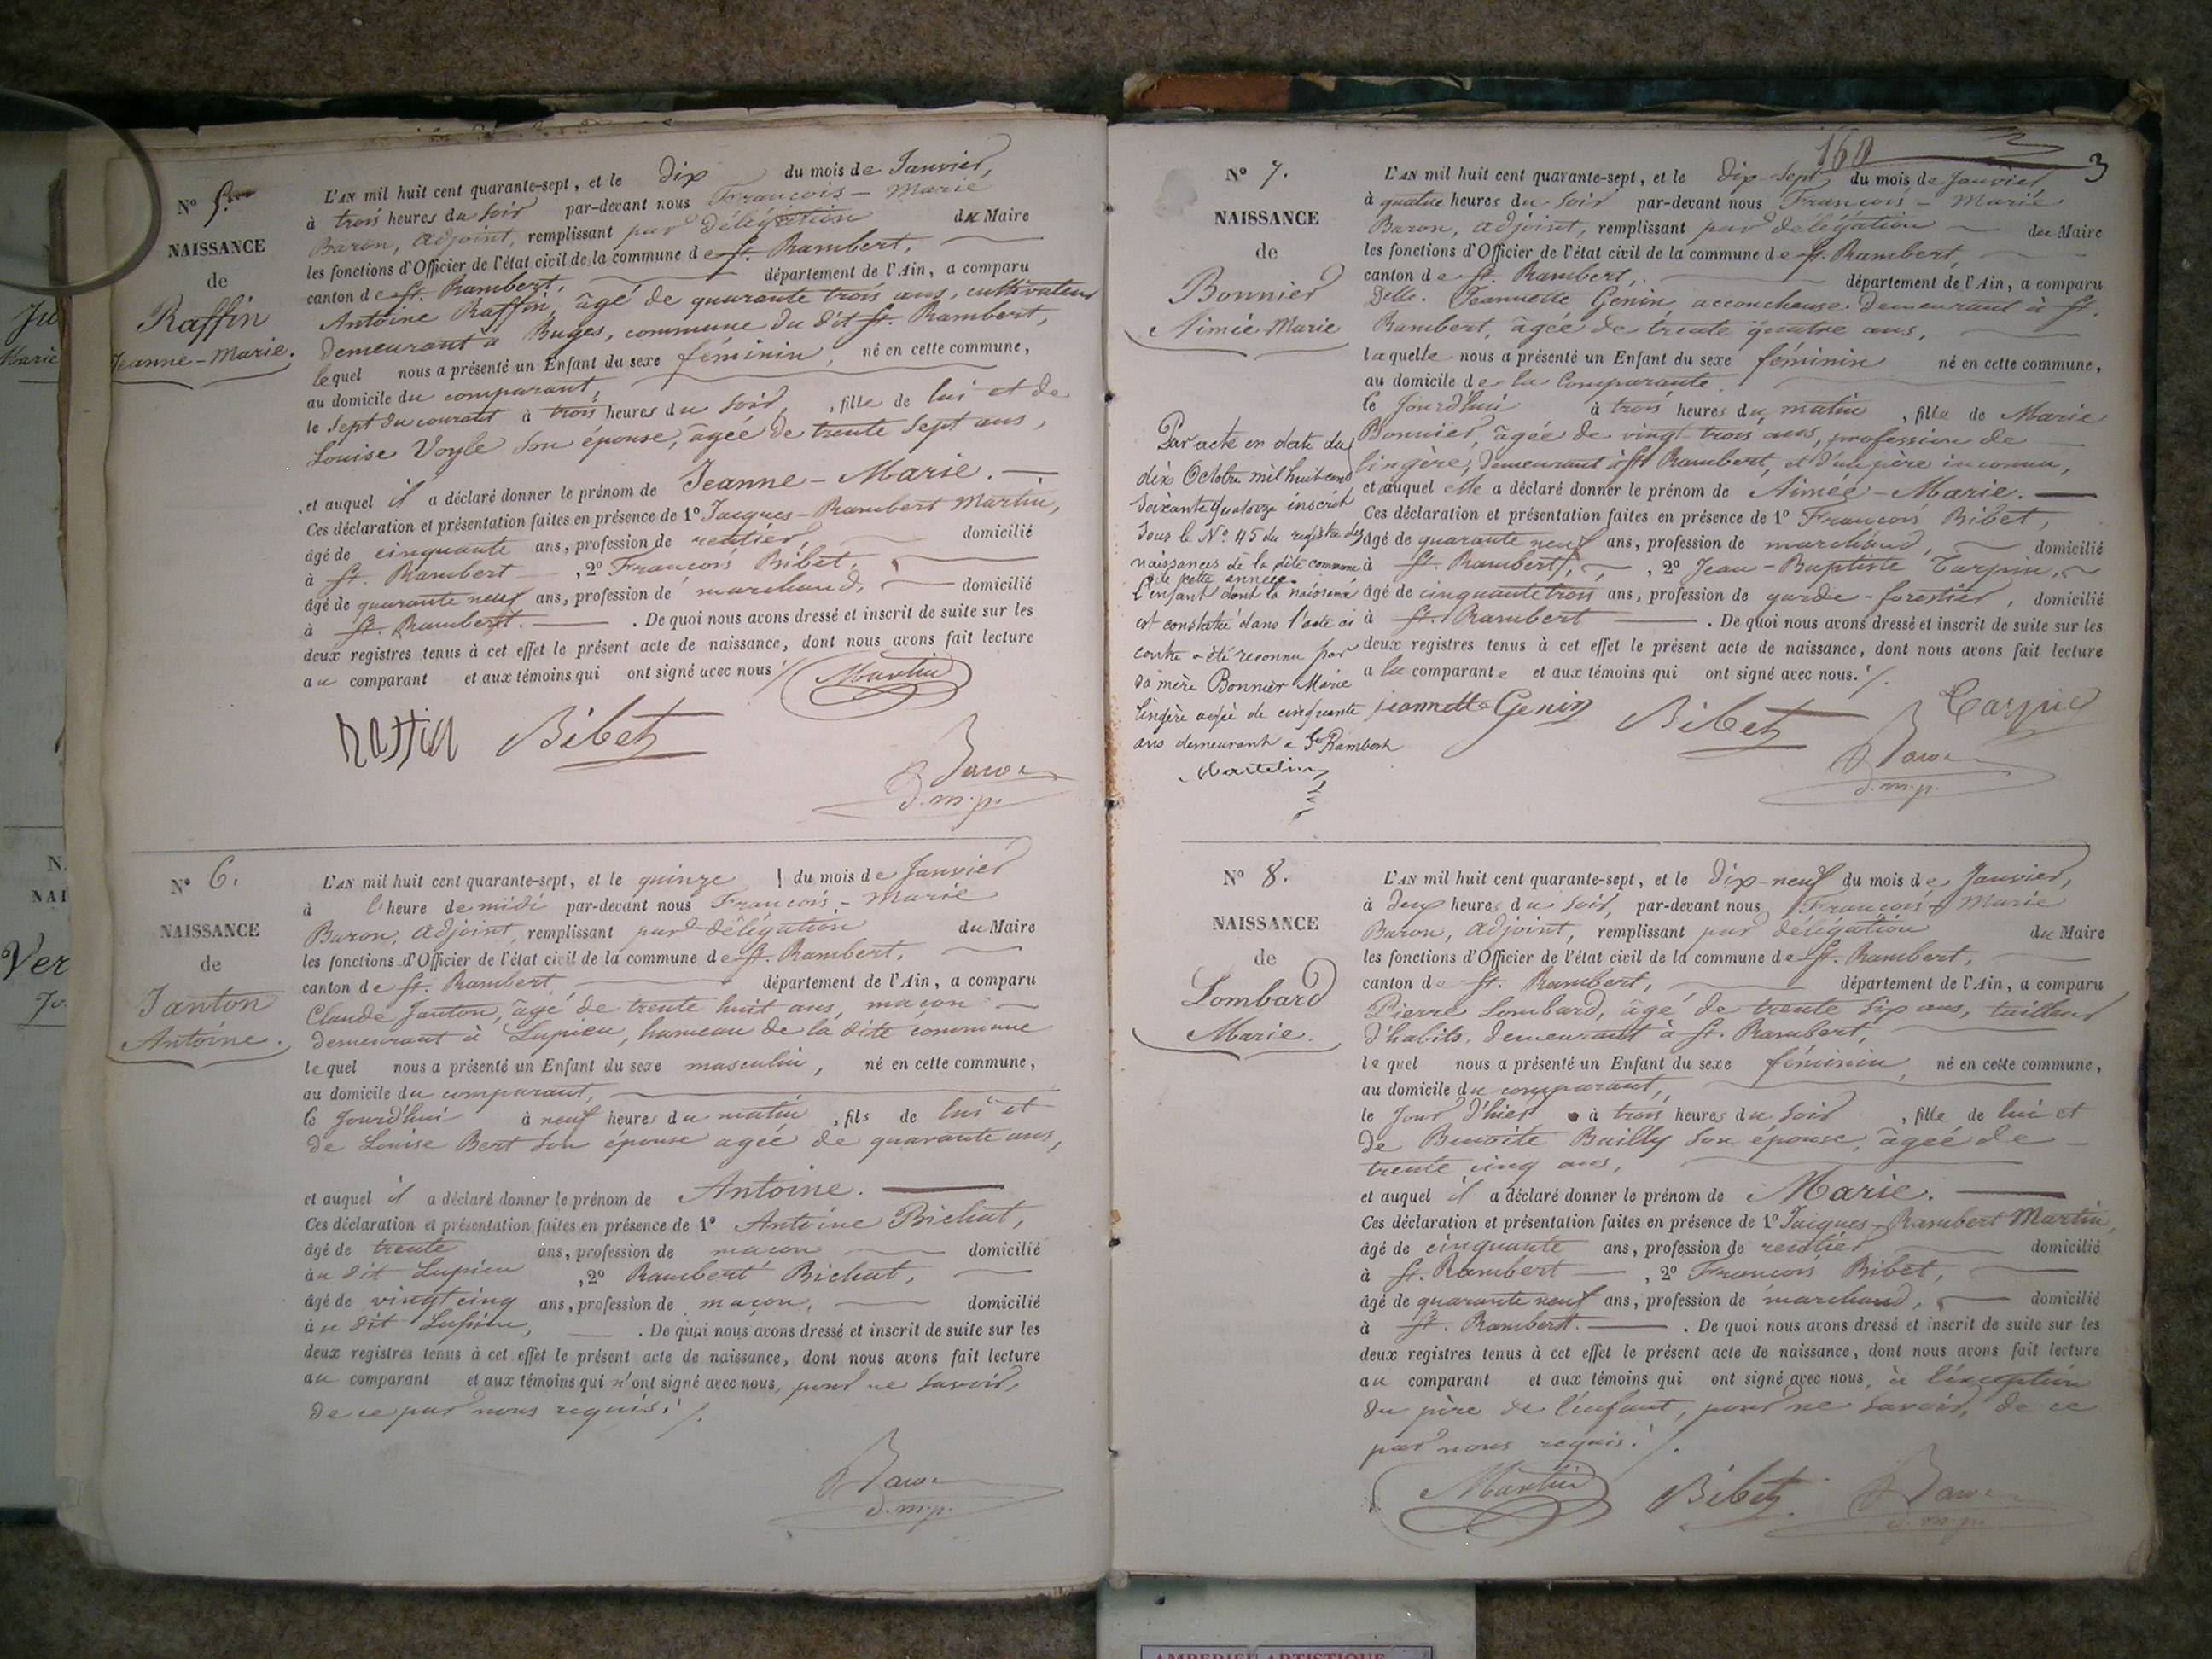 N° 5.
NAISSANCE
de
Raffin
Jeanne-Marie.
L'AN mil huit cent quarante-sept, et le dix du mois de Janvier,
à trois heures du soir par-devant nous François-Marie
Baron, adjoint, remplissant par délégation du Maire
les fonctions d'Officier de l'état civil de la commune de St. Rambert,
canton de St. Rambert, département de l'Ain, a comparu
Antoine Raffin, âgé de quarante trois ans, cultivateur
demeurant à Buges, commune du dit St. Rambert,
lequel nous a présenté un Enfant du sexe féminin, né en cette commune,
au domicile du comparant,
le sept du courant à trois heures du soir, fille de lui et de
Louise Voyle son épouse, âgée de trente sept ans,
et auquel il a déclaré donner le prénom de Jeanne-Marie.
Ces déclaration et présentation faites en présence de 1° Jacques-Rambert Martin,
âgé de cinquante ans, profession de rentier, domicilié
à St. Rambert, 2° François Bibet,
âgé de quarante neuf ans, profession de marchand, domicilié
à St. Rambert. De quoi nous avons dressé et inscrit de suite sur les
deux registres tenus à cet effet le présent acte de naissance, dont nous avons fait lecture
au comparant et aux témoins qui ont signé avec nous ./. Martin
Raffin Bibet
Baron
d.m.p.
N° 6.
NAISSANCE
de
Janton
Antoine.
L'AN mil huit cent quarante-sept, et le quinze du mois de Janvier
à l'heure de midi par-devant nous François-Marie
Baron, adjoint, remplissant par délégation du Maire
les fonctions d'Officier de l'état civil de la commune de St. Rambert,
canton de St. Rambert département de l'Ain, a comparu
Claude Janton, âgé de trente huit ans, maçon
demeurant à Lupieu, hameau de la dite commune
lequel nous a présenté un Enfant du sexe masculin, né en cette commune,
au domicile du comparant,
le jourd'hui à neuf heures du matin, fils de lui et
de Louise Bert son épouse agée de quarante ans,
et auquel il a déclaré donner le prénom de Antoine.
Ces déclaration et présentation faites en présence de 1° Antoine Bichat,
âgé de trente ans, profession de maçon domicilié
au dit Lupieu, 2° Rambert Bichat,
âgé de vingt cinq ans, profession de maçon, domicilié
au dit Lupieu, . De quoi nous avons dressé et inscrit de suite sur les
deux registres tenus à cet effet le présent acte de naissance, dont nous avons fait lecture
au comparant et aux témoins qui n'ont signé avec nous, pour ne savoir,
de ce par nous requis ./.
Baron
d.m.p.
160
3
N° 7.
NAISSANCE
de
Bonnier
Aimée Marie
L'AN mil huit cent quarante-sept, et le dix-sept du mois de Janvier,
à quatre heures du soir par-devant nous François-Marie
Baron, adjoint, remplissant par délégation du Maire
les fonctions d'Officier de l'état civil de la commune de St. Rambert,
canton de St. Rambert, département de l'Ain, a comparu
Delle. Jeannette Genin, accoucheuse demeurant à St.
Rambert, âgée de trente quatre ans,
laquelle nous a présenté un Enfant du sexe féminin né en cette commune,
au domicile de la Comparante
le jourd'hui à trois heures du matin, fille de Marie
Bonnier, âgée de vingt-trois ans, profession de
lingère, demeurant à St Rambert, et d'un père inconnu,
et auquel elle a déclaré donner le prénom de Aimée-Marie.
Ces déclaration et présentation faites en présence de 1° François Bibet,
âgé de quarante neuf ans, profession de marchand, domicilié
à St. Rambert, 2° Jean-Baptiste Carpin,
âgé de cinquante trois ans, profession de garde-forestier, domicilié
à St. Rambert . De quoi nous avons dressé et inscrit de suite sur les
deux registres tenus à cet effet le présent acte de naissance, dont nous avons fait lecture
a la comparante et aux témoins qui ont signé avec nous. ./.
jeannette Genin Bibet
Baron
d.m.p.
Par acte en date du
dix Octobre mil huit cent
soixante quatorze inscrit
sous le N° 45 du registre des
naissances de la dite commune
de cette année
l'enfant dont la naissance
est constatée dans l'acte ci
contre a été reconnu par
sa mère Bonnier Marie
lingère agée de cinquante
ans demeurant à St Rambert
N° 8.
NAISSANCE
de
Lombard
Marie.
L'AN mil huit cent quarante-sept, et le dix-neuf du mois de Janvier,
à deux heures du soir, par-devant nous François-Marie
Baron, adjoint, remplissant par délégation du Maire
les fonctions d'Officier de l'état civil de la commune de St. Rambert,
canton de St. Rambert, département de l'Ain, a comparu
Pierre Lombard, âgé de trente six ans, tailleur
d'habits, demeurant à St. Rambert,
lequel nous a présenté un Enfant du sexe féminin, né en cette commune,
au domicile du comparant,
le jour d'hier à trois heures du soir, fille de lui et
de Benoite Bailly son épouse, âgée de
trente cinq ans,
et auquel il a déclaré donner le prénom de Marie.
Ces déclaration et présentation faites en présence de 1° Jacques-Rambert Martin,
âgé de cinquante ans, profession de rentier domicilié
à St. Rambert, 2° François Bibet,
âgé de quarante neuf ans, profession de marchand, domicilié
à St. Rambert. . De quoi nous avons dressé et inscrit de suite sur les
deux registres tenus à cet effet le présent acte de naissance, dont nous avons fait lecture
au comparant et aux témoins qui ont signé avec nous, à l'exception
du père de l'enfant, pour ne savoir, de ce
par nous requis ./.
Martin Bibet Baron
d.m.p.
AMBERIEU ARTISTIQUE